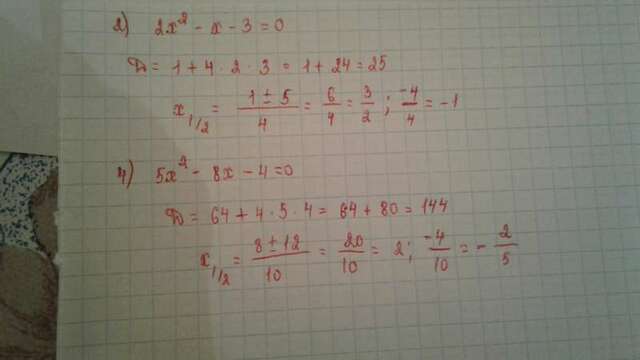 2) 2x² - x - 3 = 0
D = 1 + 4 · 2 · 3 = 1 + 24 = 25
x₁/₂ = (1 ± 5)/4 = 6/4 = 3/2 ; -4/4 = -1
4) 5x² - 8x - 4 = 0
D = 64 + 4 · 5 · 4 = 64 + 80 = 144
x₁/₂ = (8 ± 12)/10 = 20/10 = 2 ; -4/10 = - 2/5